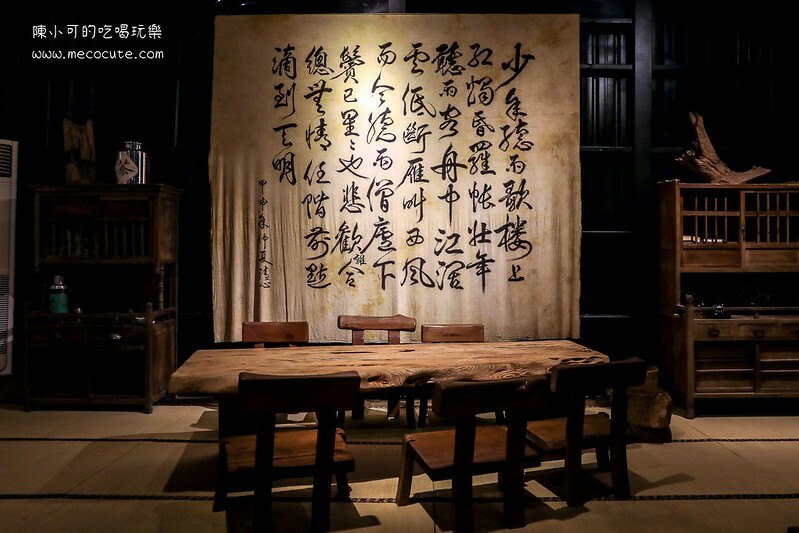 陳小可的吃喝玩樂
www.mecocute.com
少年聽雨歌樓上
紅燭昏羅帳壯年
聽雨客舟中江闊
雲低斷雁叫西風
而今聽雨僧廬下
鬢已星星也悲歡離合
總無情任階前點
滴到天明
甲申年
茶